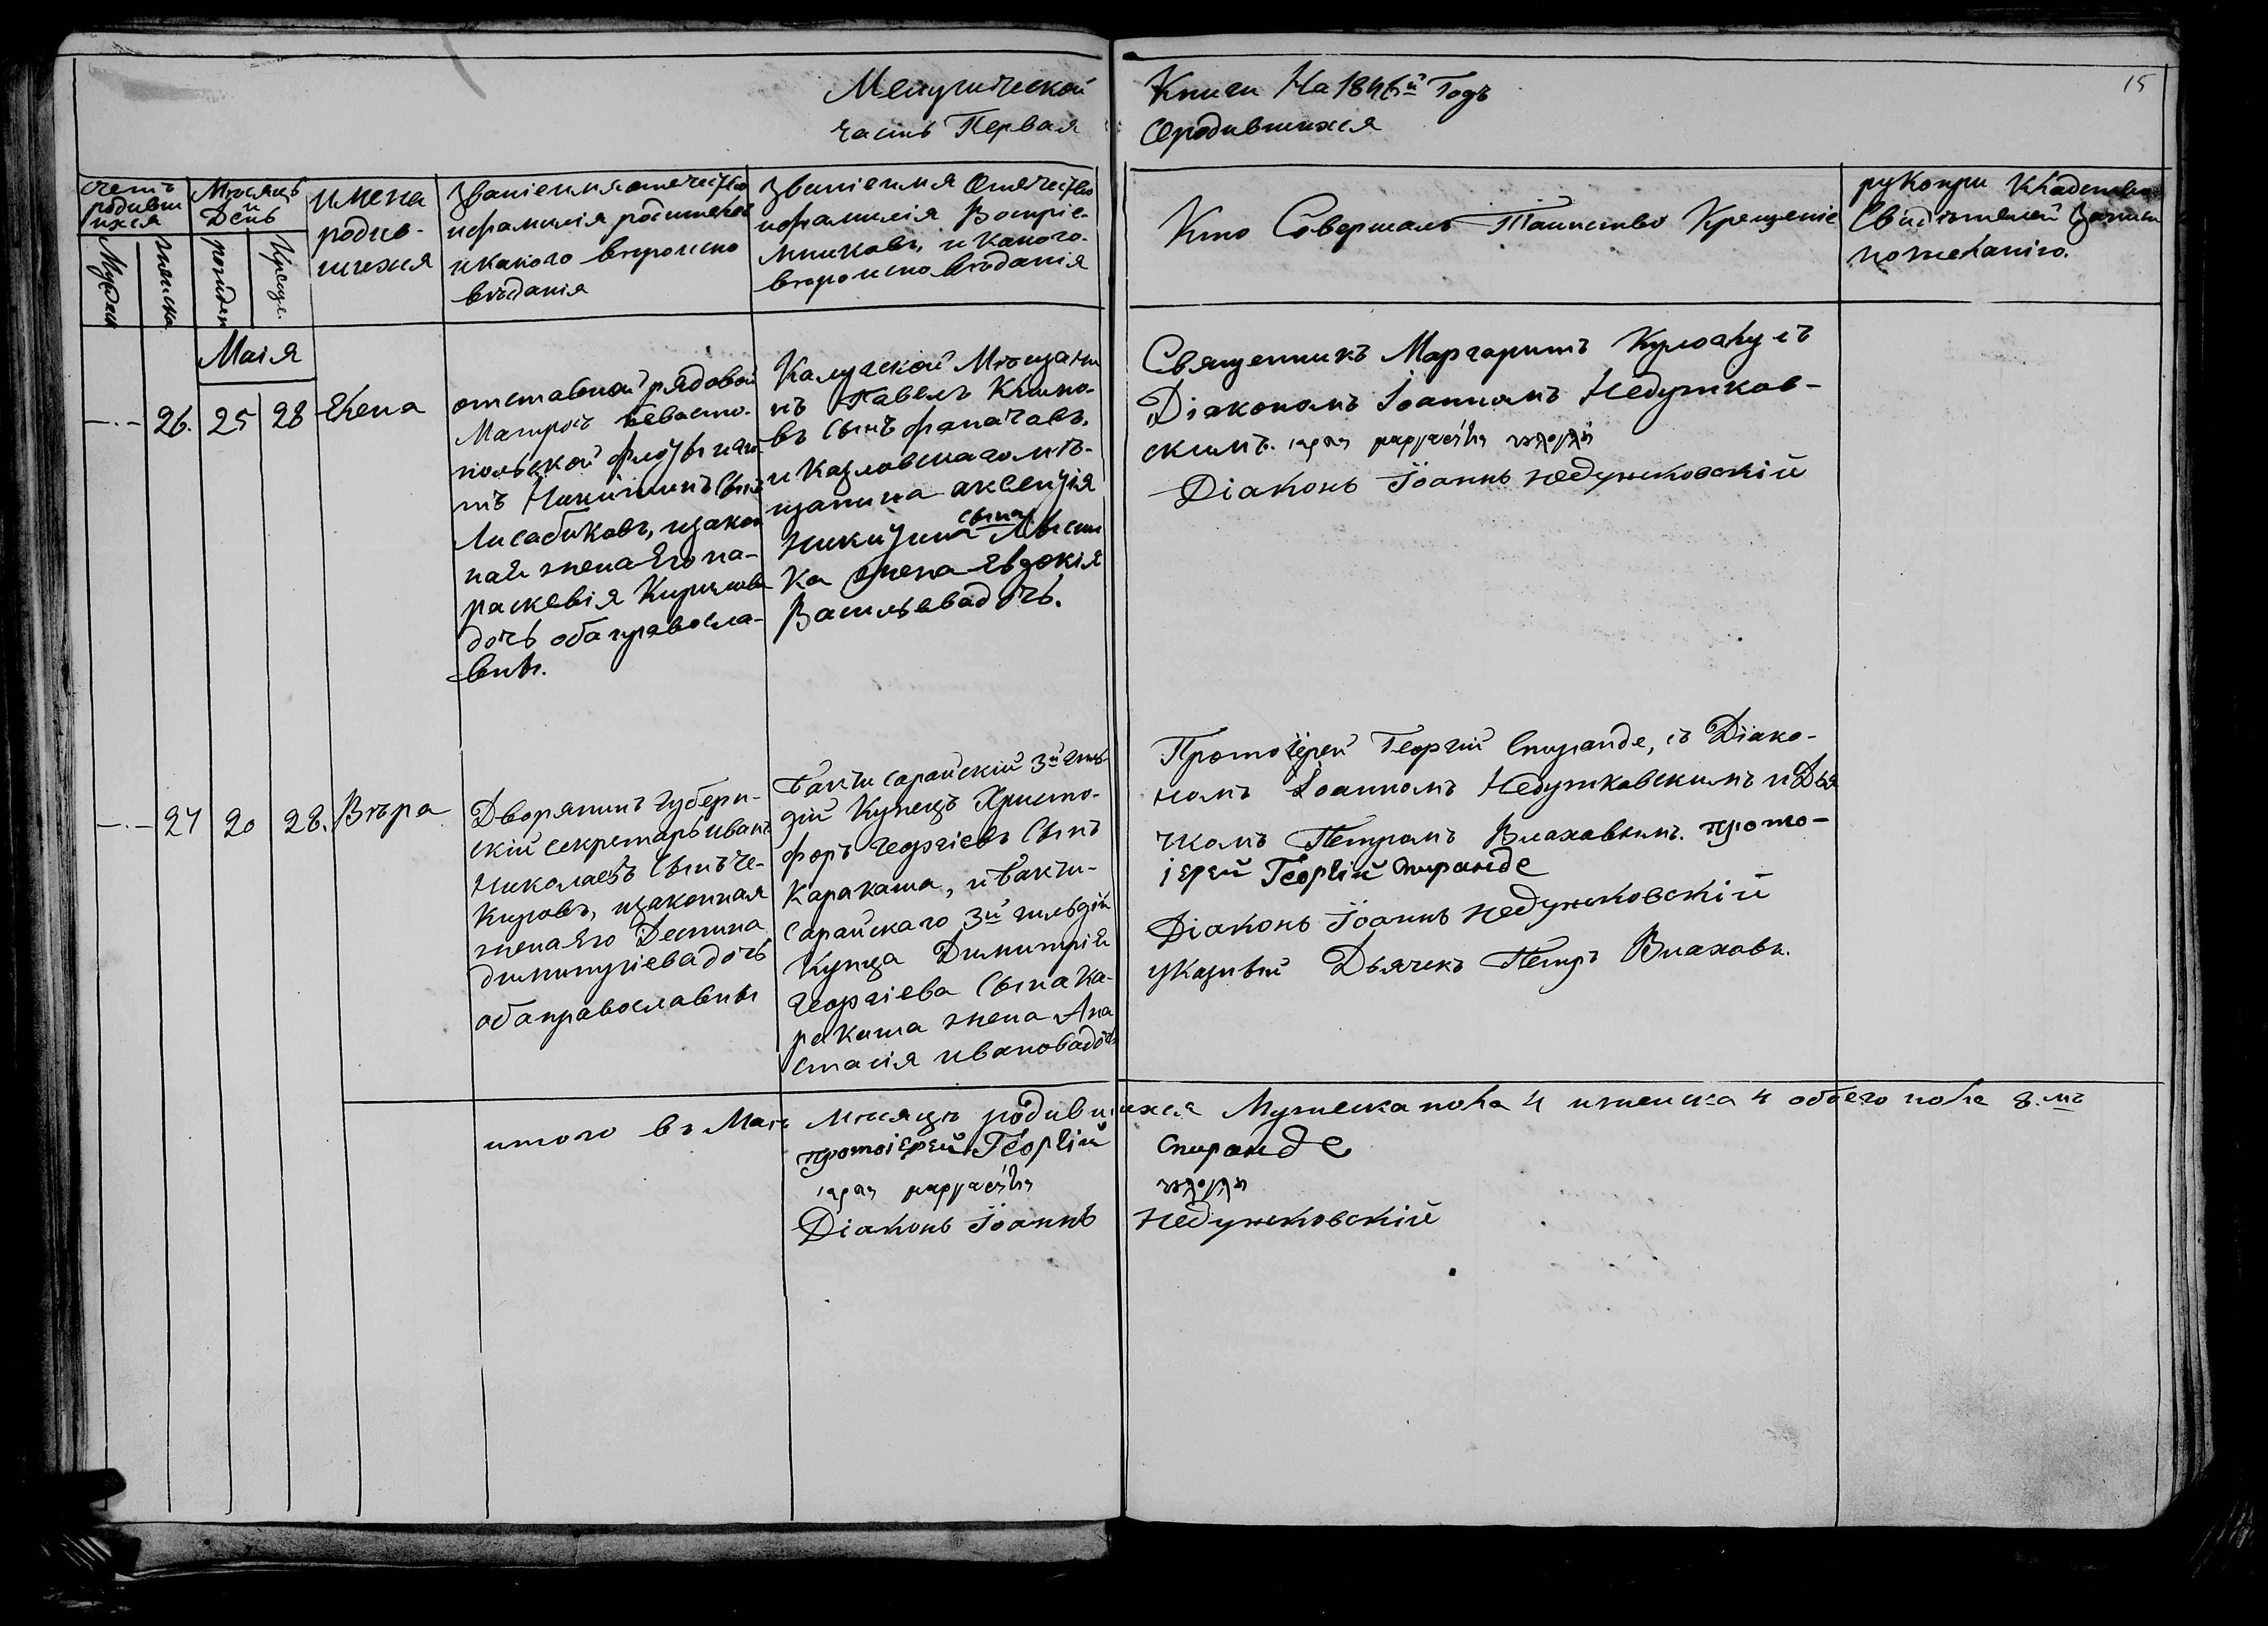 Метрической Книги На 1846й Годъ
часть Первая Ородившихся
15
счетъ родивш ихся
Мѣсяцъ и День
имена родив-шихся
Званіе имя отечество
ифамилія родителей
икакого вѣроиспо
вѣданія
Званіе имя Отечество
ифамилія Воспріе-
мниковъ, и какого
вѣроисповѣданія
Кто Совершалъ Таинство Крещеніе
рукопри кладство
Свидѣтелей записи
по желанію.
Муж
женска
рожден
Креще.
Маія
—·— 26. 25 28 Елена
отставной рядовой
Матросъ Севасто-
польской
тъ Никитинъ Сынъ
, изакон
ная жена Его па-
раскевія Кирилова
дочь оба правосла-
вны.
Калужской Мѣщани
нъ Павелъ Климо-
въ Сынъ
и Казловскагомѣ-
щанина аксентія
Никитина сына
ка жена Евдокія
Васильевадочь.
Священникъ Маргаритъ съ
Діакономъ Іоанномъ Недутковскимъ.
Діаконъ Іоаннъ Недужковскій
—·— 27 20 28. Вѣра
Дворянинъ губерн-
скій секретарь иванъ
Николаевъ Сынъ че-
, изаконная
жена Его Деспина
димитріевадочь
оба православны
Бахчисарайскій 3й гиль
дій Купецъ Христо-
форъ Георгіевъ Сынъ
Каракаша, и Бахчи-
сарайскаго 3й гильдій
Купца Димитрія
Георгіева Сына Ка-
ракаша жена Ана
стасія ивановадочь
Протоіерей Георгій Спиранде, съ Діако-
номъ Іоанномъ Недутковскимъ и Дья
чкомъ Петромъ Влаховымъ. прото-
іерей Георгій Спиранде
Діаконъ Іоаннъ Недужковскій
указный Дьячекъ Петръ Влаховъ.
итого въ Маи мѣсяцѣ родившихся Мужеска пола 4 иженска 4 обоего пола 8.мь
протоіерей Георгій Спиранде
Діаконъ Іоаннъ Недужковскій